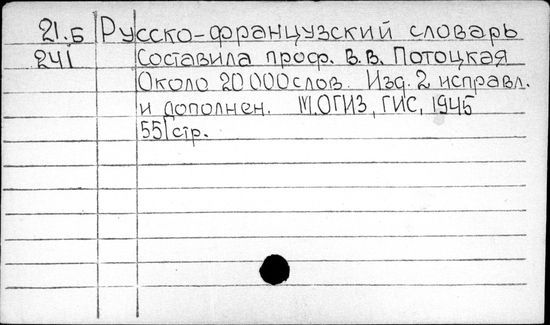 21.Б Русско-французский словарь
241 Составила проф. В.В. Потоцкая
Около 20000слов. Изд. 2 исправл.
и дополнен. М.ОГИЗ, ГИС, 1945
551стр.